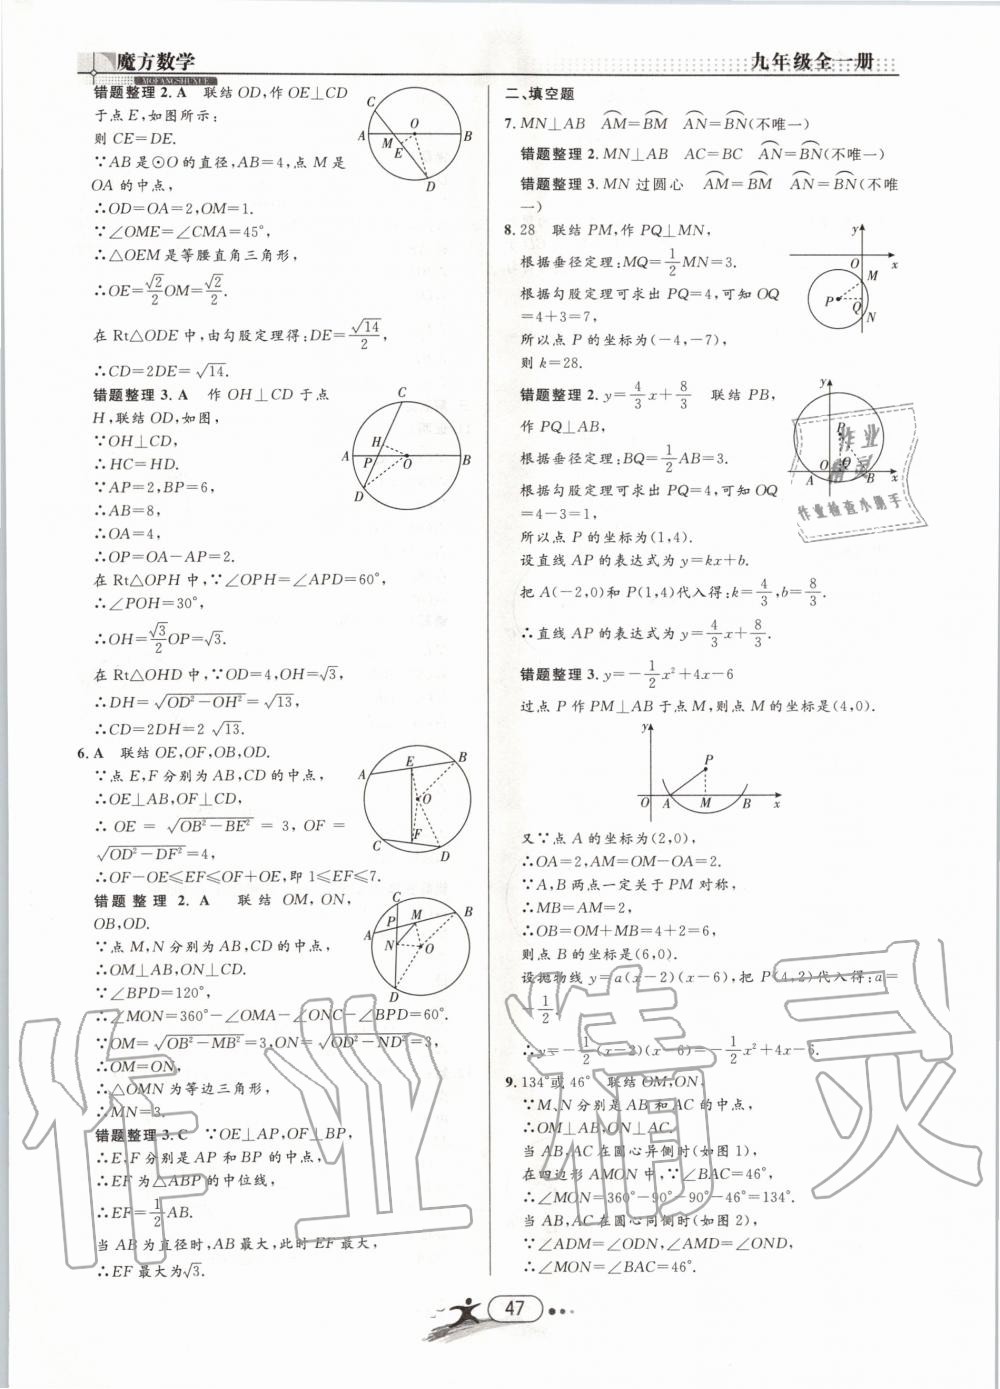 魔方数学
MOFANGSHUXUE
九年级全一册
错题整理2. A 联结OD,作OE⊥CD
于点E,如图所示:
则CE=DE.
∵AB是⊙O的直径,AB=4,点M是
OA的中点,
∴OD=OA=2,OM=1.
∵∠OME=∠CMA=45°,
∴△OEM是等腰直角三角形,
∴OE=√2/2 OM=√2/2.
在Rt△ODE中,由勾股定理得:DE=√14/2,
∴CD=2DE=√14.
错题整理3. A 作OH⊥CD于点
H,联结OD,如图,
∵OH⊥CD,
∴HC=HD.
∵AP=2,BP=6,
∴AB=8,
∴OA=4,
∴OP=OA-AP=2.
在Rt△OPH中,∵∠OPH=∠APD=60°,
∴∠POH=30°,
∴OH=√3/2 OP=√3.
在Rt△OHD中,∵OD=4,OH=√3,
∴DH=√(OD²-OH²)=√13,
∴CD=2DH=2√13.
6. A 联结OE,OF,OB,OD.
∵点E,F分别为AB,CD的中点,
∴OE⊥AB,OF⊥CD,
∴OE=√(OB²-BE²)=3,OF=
√(OD²-DF²)=4,
∴OF-OE≤EF≤OF+OE,即1≤EF≤7.
错题整理2. A 联结OM,ON,
OB,OD.
∵点M,N分别为AB,CD的中点,
∴OM⊥AB,ON⊥CD.
∵∠BPD=120°,
∴∠MON=360°-∠OMA-∠ONC-∠BPD=60°.
∵OM=√(OB²-MB²)=3,ON=√(OD²-ND²)=3,
∴OM=ON,
∴△OMN为等边三角形,
∴MN=3.
错题整理3. C ∵OE⊥AP,OF⊥BP,
∴E,F分别是AP和BP的中点,
∴EF为△ABP的中位线,
∴EF=1/2 AB.
当AB为直径时,AB最大,此时EF最大,
∴EF最大为√3.
二、填空题
7. MN⊥AB ⌒AM=⌒BM ⌒AN=⌒BN(不唯一)
错题整理2. MN⊥AB AC=BC ⌒AN=⌒BN(不唯一)
错题整理3. MN过圆心 ⌒AM=⌒BM ⌒AN=⌒BN(不唯
一)
8. 28 联结PM,作PQ⊥MN,
根据垂径定理:MQ=1/2 MN=3.
根据勾股定理可求出PQ=4,可知OQ
=4+3=7,
所以点P的坐标为(-4,-7),
则k=28.
错题整理2. y=4/3 x+8/3 联结PB,
作PQ⊥AB,
根据垂径定理:BQ=1/2 AB=3.
根据勾股定理可求出PQ=4,可知OQ
=4-3=1,
所以点P的坐标为(1,4).
设直线AP的表达式为y=kx+b.
把A(-2,0)和P(1,4)代入得:k=4/3,b=8/3.
∴直线AP的表达式为y=4/3 x+8/3.
错题整理3. y=-1/2 x²+4x-6
过点P作PM⊥AB于点M,则点M的坐标是(4,0).
又∵点A的坐标为(2,0),
∴OA=2,AM=OM-OA=2.
∵A,B两点一定关于PM对称,
∴MB=AM=2,
∴OB=OM+MB=4+2=6,
则点B的坐标是(6,0).
设抛物线y=a(x-2)(x-6),把P(4,2)代入得:a=
-1/2.
∴y=-1/2(x-2)(x-6)=-1/2 x²+4x-6.
9. 134°或46° 联结OM,ON,
∵M、N分别是AB和AC的中点,
∴OM⊥AB,ON⊥AC.
当AB,AC在圆心异侧时(如图1),
在四边形AMON中,∵∠BAC=46°,
∴∠MON=360°-90°-90°-46°=134°.
当AB,AC在圆心同侧时(如图2),
∵∠ADM=∠ODN,∠AMD=∠OND,
∴∠MON=∠BAC=46°.
47
作业精灵
作业检查小助手